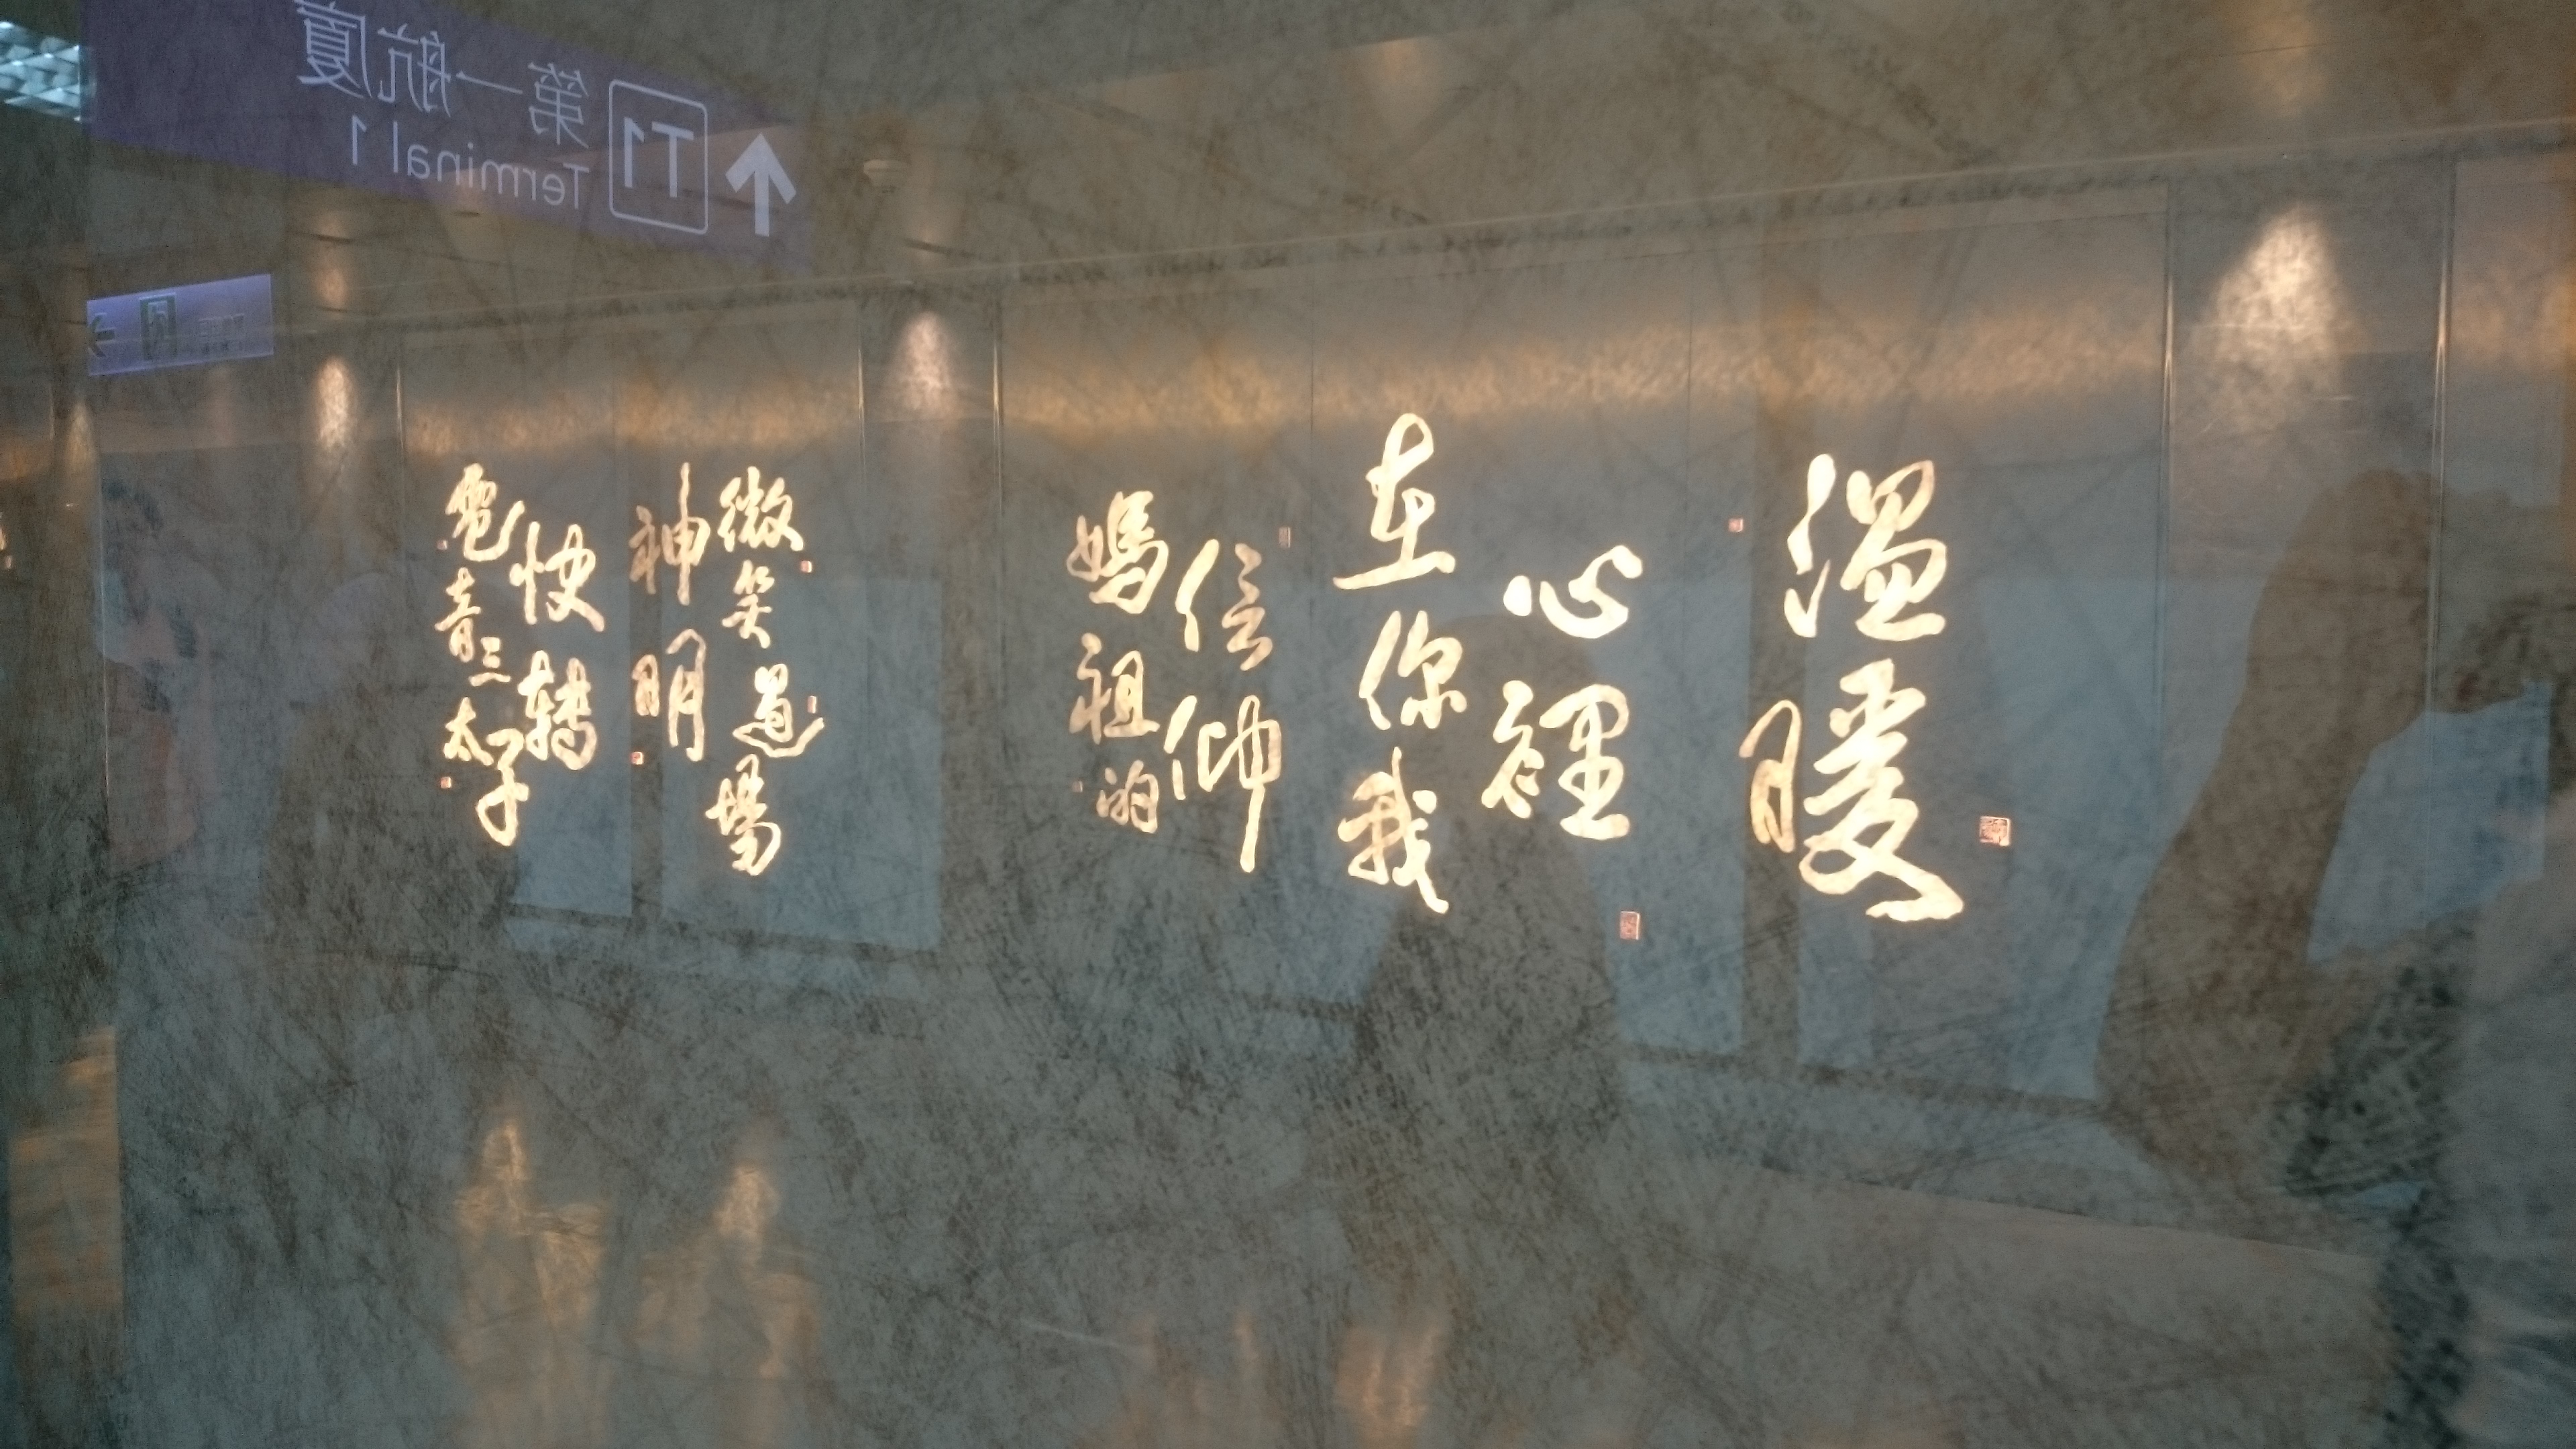 溫暖
心裡
在你我
信仰
媽祖的
微笑道場
神明
快轉
電音三太子
第一航廈
T1
Terminal 1